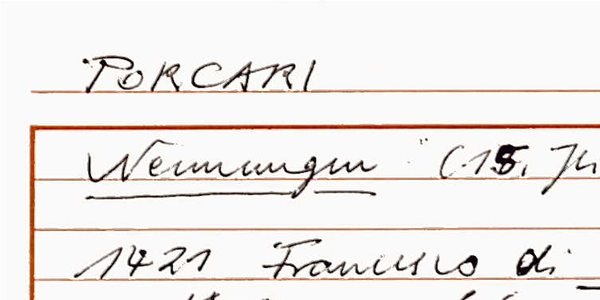 PORCARI
Nennungen (15. Jh
1421 Francesco di